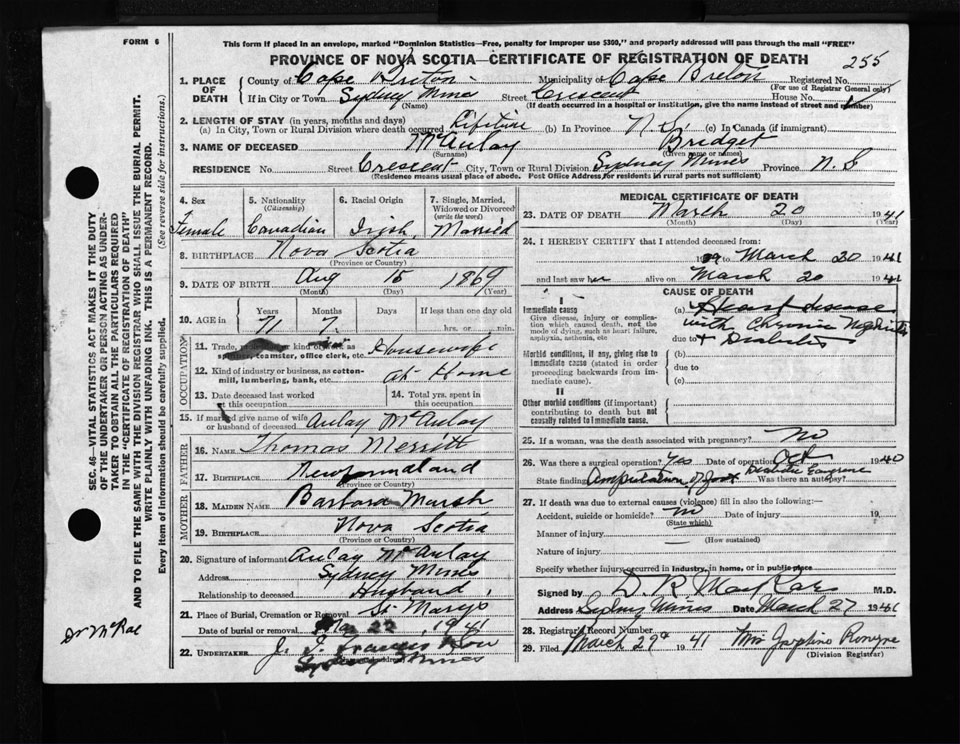 FORM 6
This form if placed in an envelope, marked "Dominion Statistics—Free, penalty for improper use $300," and properly addressed will pass through the mail "FREE"
PROVINCE OF NOVA SCOTIA—CERTIFICATE OF REGISTRATION OF DEATH 255
1. PLACE OF DEATH County of Cape Breton Municipality of Cape Breton Registered No.
(For use of Registrar General only)
If in City or Town Sydney Mines Street Crescent House No.
(Name) (If death occurred in a hospital or institution, give the name instead of street and number)
2. LENGTH OF STAY (in years, months and days)
(a) In City, Town or Rural Division where death occurred Lifetime (b) In Province N.S. (c) In Canada (if immigrant)
3. NAME OF DECEASED McAulay Bridget
(Surname) (Given name or names)
RESIDENCE No. Street Crescent City, Town or Rural Division Sydney Mines Province N.S
(Residence means usual place of abode. Post Office Address for residents in rural parts not sufficient)
4. Sex Female
5. Nationality (Citizenship) Canadian
6. Racial Origin Irish
7. Single, Married, Widowed or Divorced (write the word) Married
8. BIRTHPLACE Nova Scotia
(Province or Country)
9. DATE OF BIRTH Aug 15 1869
(Month) (Day) (Year)
10. AGE in Years Months If less than one day old
71 7 hrs. or min.
OCCUPATION
11. Trade, or kind of work as teamster, office clerk, etc. Housewife
12. Kind of industry or business, as cotton-mill, lumbering, bank, etc. at Home
13. Date deceased last worked at this occupation
14. Total yrs. spent in this occupation
15. If married give name of wife or husband of deceased Aulay McAulay
FATHER
16. NAME Thomas Merritt
17. BIRTHPLACE Newfoundland
(Province or Country)
MOTHER
18. MAIDEN NAME Barbara Marsh
19. BIRTHPLACE Nova Scotia
(Province or Country)
20. Signature of informant Aulay McAulay
Address Sydney Mines
Relationship to deceased Husband
21. Place of Burial, Cremation or Removal St Marys
Date of burial or removal 22, 1941
22. UNDERTAKER J. Francis
Sydney Mines
MEDICAL CERTIFICATE OF DEATH
23. DATE OF DEATH March 20 1941
(Month) (Day) (Year)
24. I HEREBY CERTIFY that I attended deceased from:
19 to March 20 1941
and last saw her alive on March 20 1941
CAUSE OF DEATH
I
Immediate cause
Give disease, injury or complication which caused death, not the mode of dying, such as heart failure, asphyxia, asthenia, etc.
(a) Heart disease
with Chronic Nephritis
+ Diabetes
due to
Morbid conditions, if any, giving rise to immediate cause (stated in order proceeding backwards from immediate cause).
(b)
due to
(c)
II
Other morbid conditions (if important) contributing to death but not causally related to immediate cause.
25. If a woman, was the death associated with pregnancy? no
26. Was there a surgical operation? yes Date of operation Oct 1940
State finding Amputation of foot Diabetic Gangrene Was there an autopsy?
27. If death was due to external causes (violence) fill in also the following:—
Accident, suicide or homicide? no Date of injury 19
(State which)
Manner of injury
(How sustained)
Nature of injury
Specify whether injury occurred in industry, in home, or in public place
Signed by M.D.
Address Sydney Mines Date March 27 1941
28. Registrar's Record Number
29. Filed March 27 1941 Mrs
(Division Registrar)
SEC. 46—VITAL STATISTICS ACT MAKES IT THE DUTY
OF THE UNDERTAKER OR PERSON ACTING AS UNDER-
TAKER TO OBTAIN ALL THE PARTICULARS REQUIRED
IN THE "CERTIFICATE OF REGISTRATION OF DEATH"
AND TO FILE THE SAME WITH THE DIVISION REGISTRAR WHO SHALL ISSUE THE BURIAL PERMIT.
WRITE PLAINLY WITH UNFADING INK. THIS IS A PERMANENT RECORD.
Every item of information should be carefully supplied. (See reverse side for instructions.)
Dr McRae